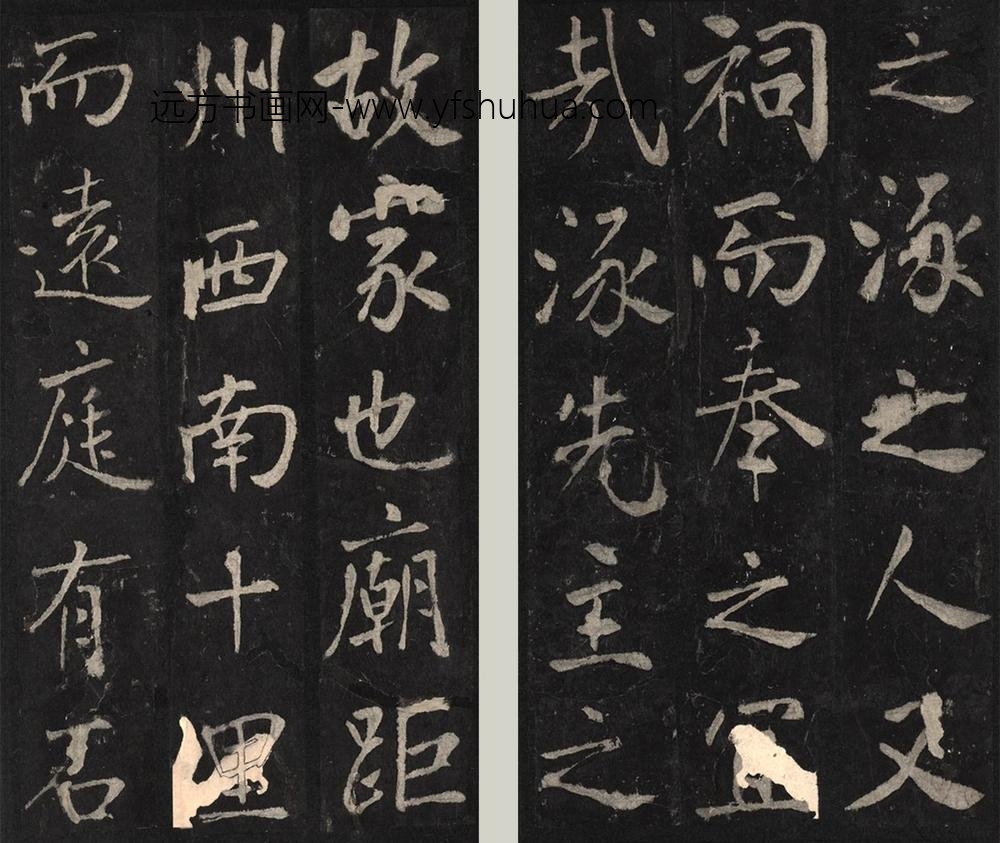 之涿之人又
祠而奉之宜
哉涿先主之
故家也廟距
州西南十里
而遠庭有石
远方书画网-www.yfshuhua.com